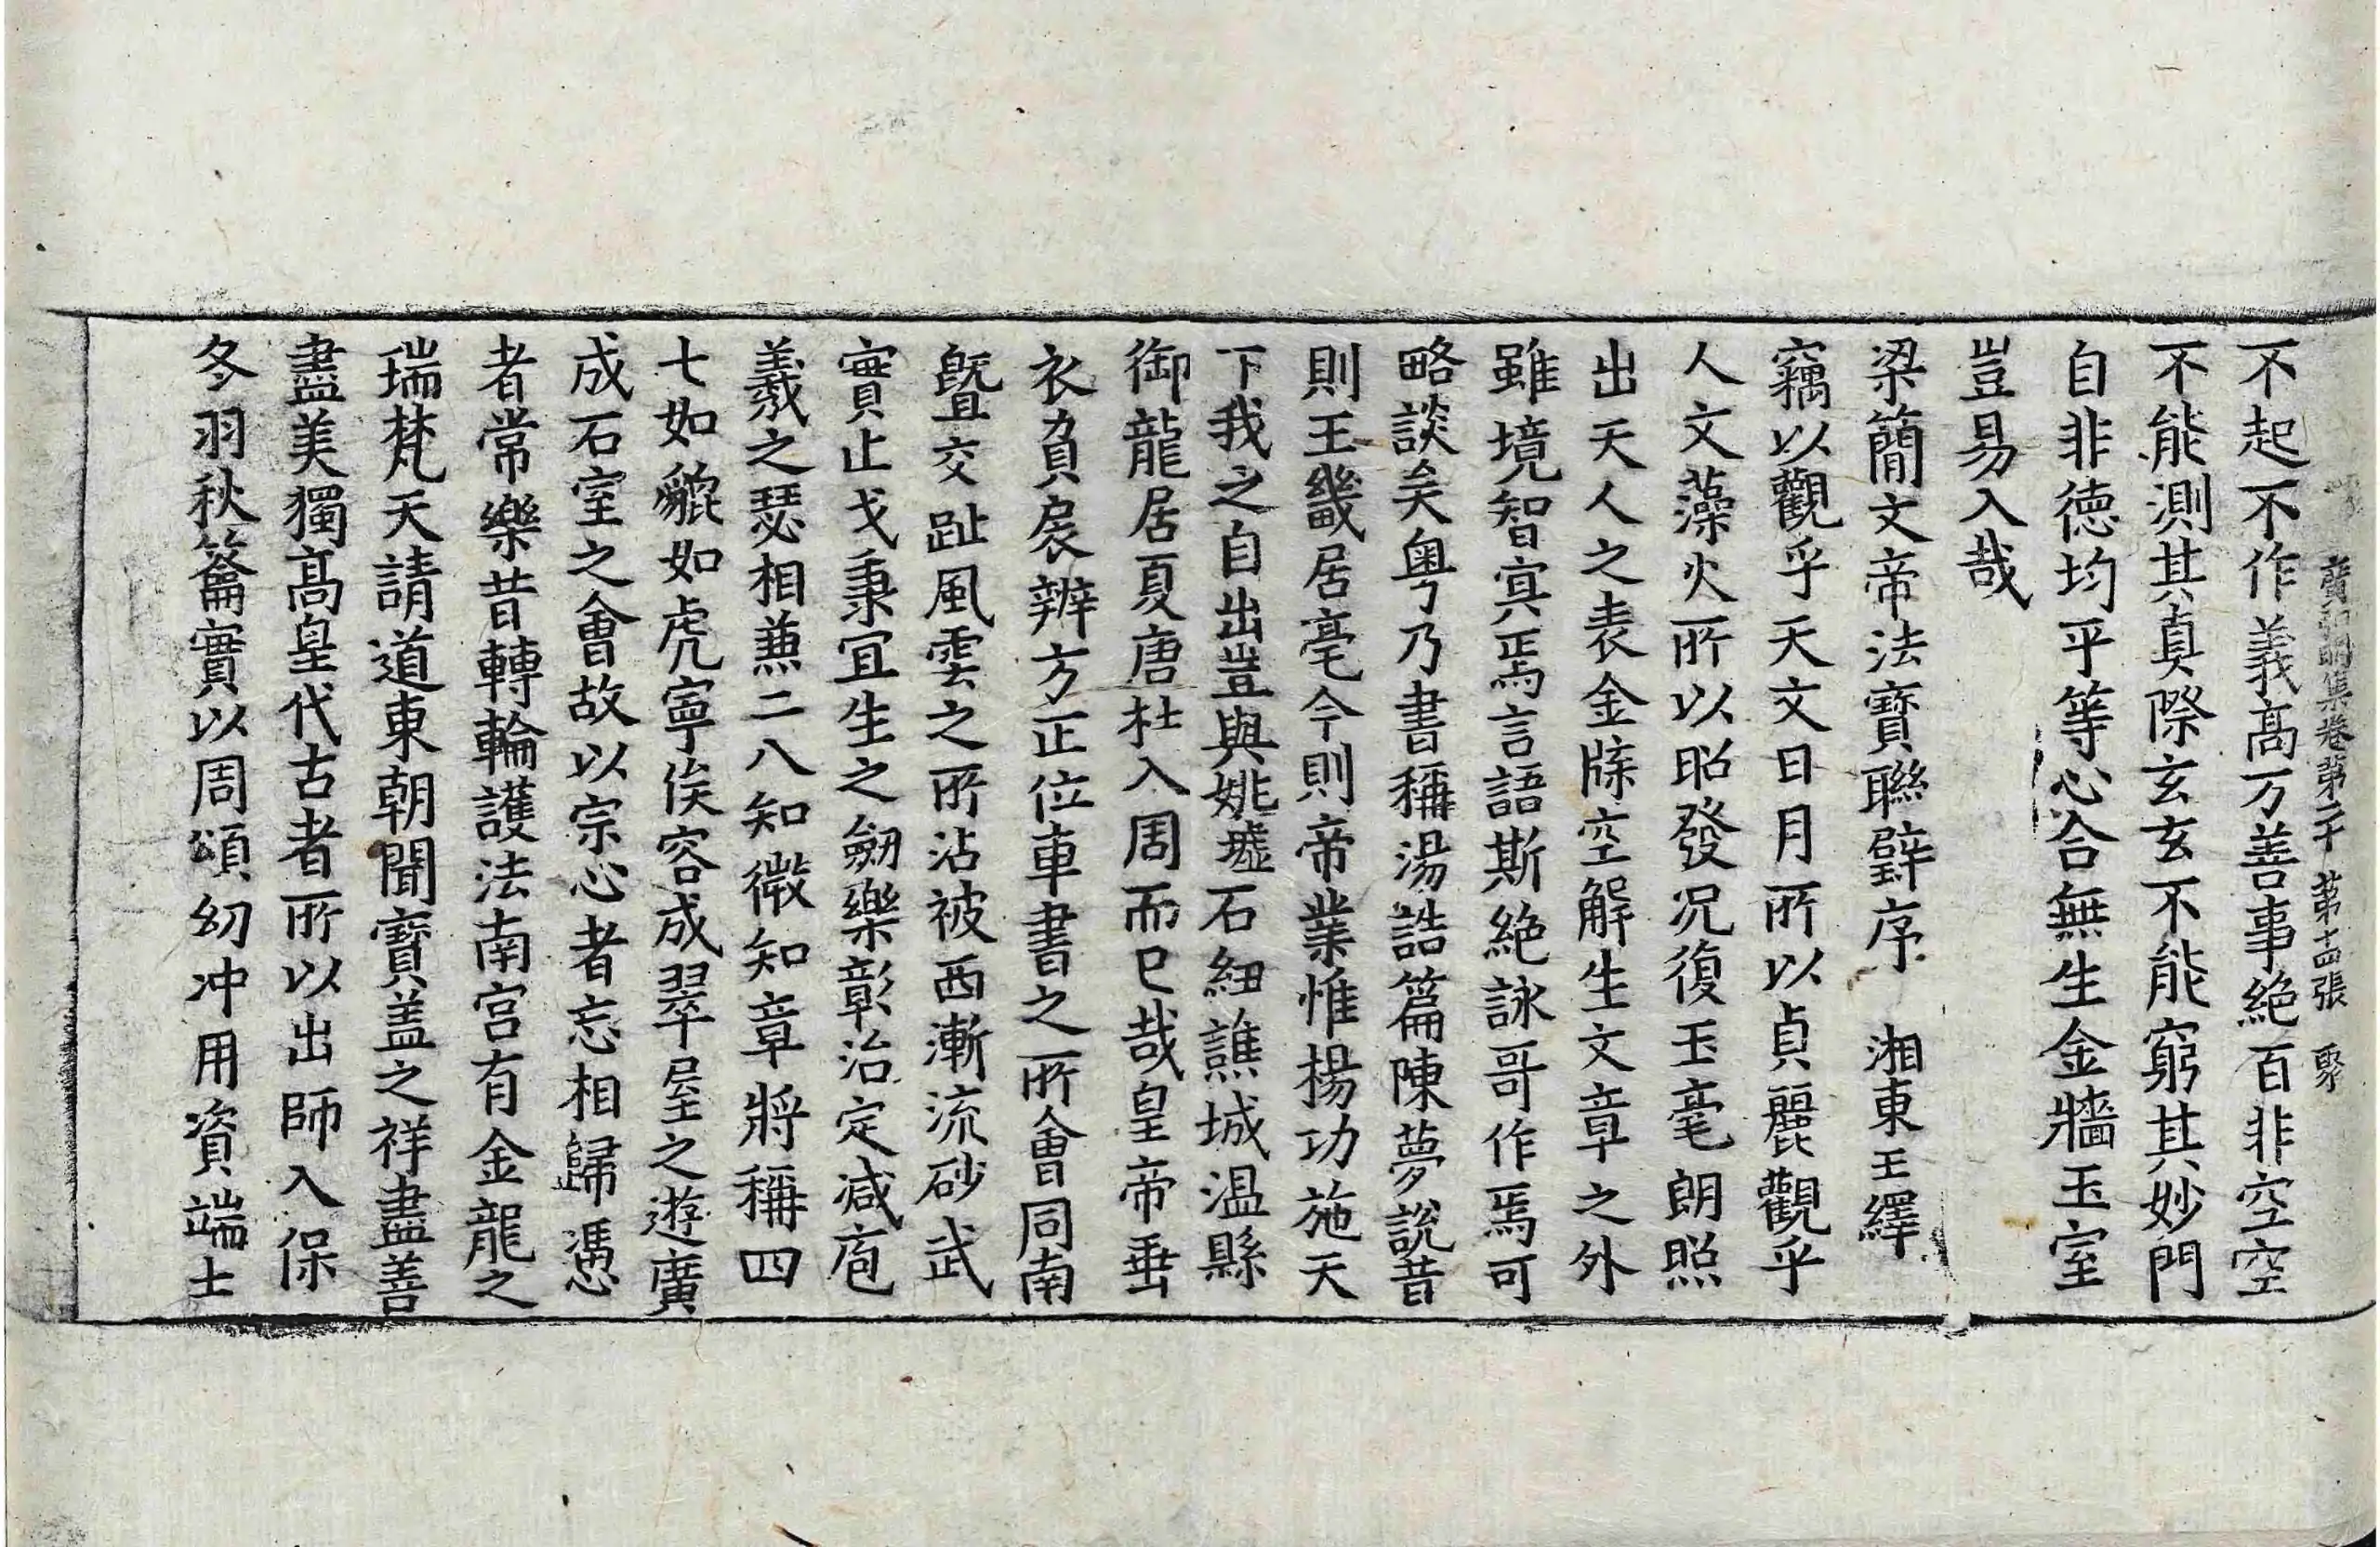 廣弘明集卷第二十　第十四張　聚
不起不作義高万善事絶百非空空
不能測其真際玄玄不能窮其妙門
自非德均平等心合無生金牆玉室
豈易入哉
梁簡文帝法寶聯璧序　湘東王繹
竊以觀乎天文日月所以貞麗觀乎
人文藻火所以昭發况復玉毫朗照
出天人之表金牒空解生文章之外
雖境智寘焉言語斯絶詠哥作焉可
略談矣粤乃書稱湯誥篇陳夢說昔
則王畿居亳今則帝業惟揚功施天
下我之自出豈與姚墟石紐譙城温縣
御龍居夏唐杜入周而已哉皇帝垂
衣負扆辨方正位車書之所會同南
曁交趾風雲之所沾被西漸流砂武
實止戈秉宜生之劒樂彰治定減庖
羲之瑟相兼二八知微知章將稱四
七如貔如虎寧俟容成翠屋之遊廣
成石室之會故以宗心者忘相歸憑
者常樂昔轉輪護法南宫有金龍之
瑞梵天請道東朝聞寶盖之祥盡善
盡美獨高皇代古者所以出師入保
冬羽秋籥實以周頌幼冲用資端士